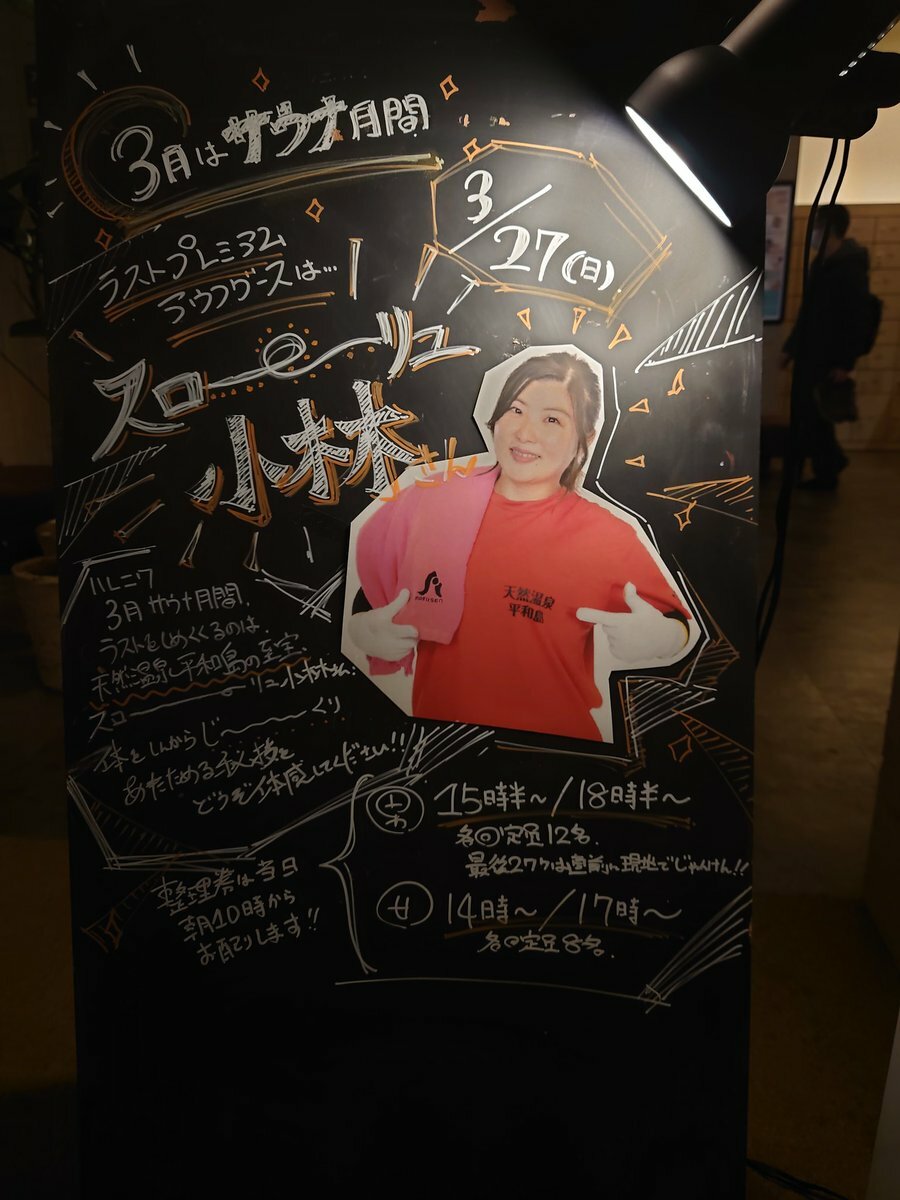 3月は サウナ月間
3/27(日)
ラストプレミアム
アウフグースは…
スローーリュ
小林さん
ハレニワ
3月サウナ月間、
ラストをしめくくるのは、
天然温泉平和島の至宝、
スロー〜リュ小林さん!
体をしんからじ〜〜くり
あたためる秘技を
どうぞ体感してください!!
天然温泉
平和島
整理券は当日
朝10時から
お配りします!!
15時半〜/18時半〜
各回定員12名、
最後2ワクは直前に現地でじゃんけん!!
女 14時〜/17時〜
各回定員8名、